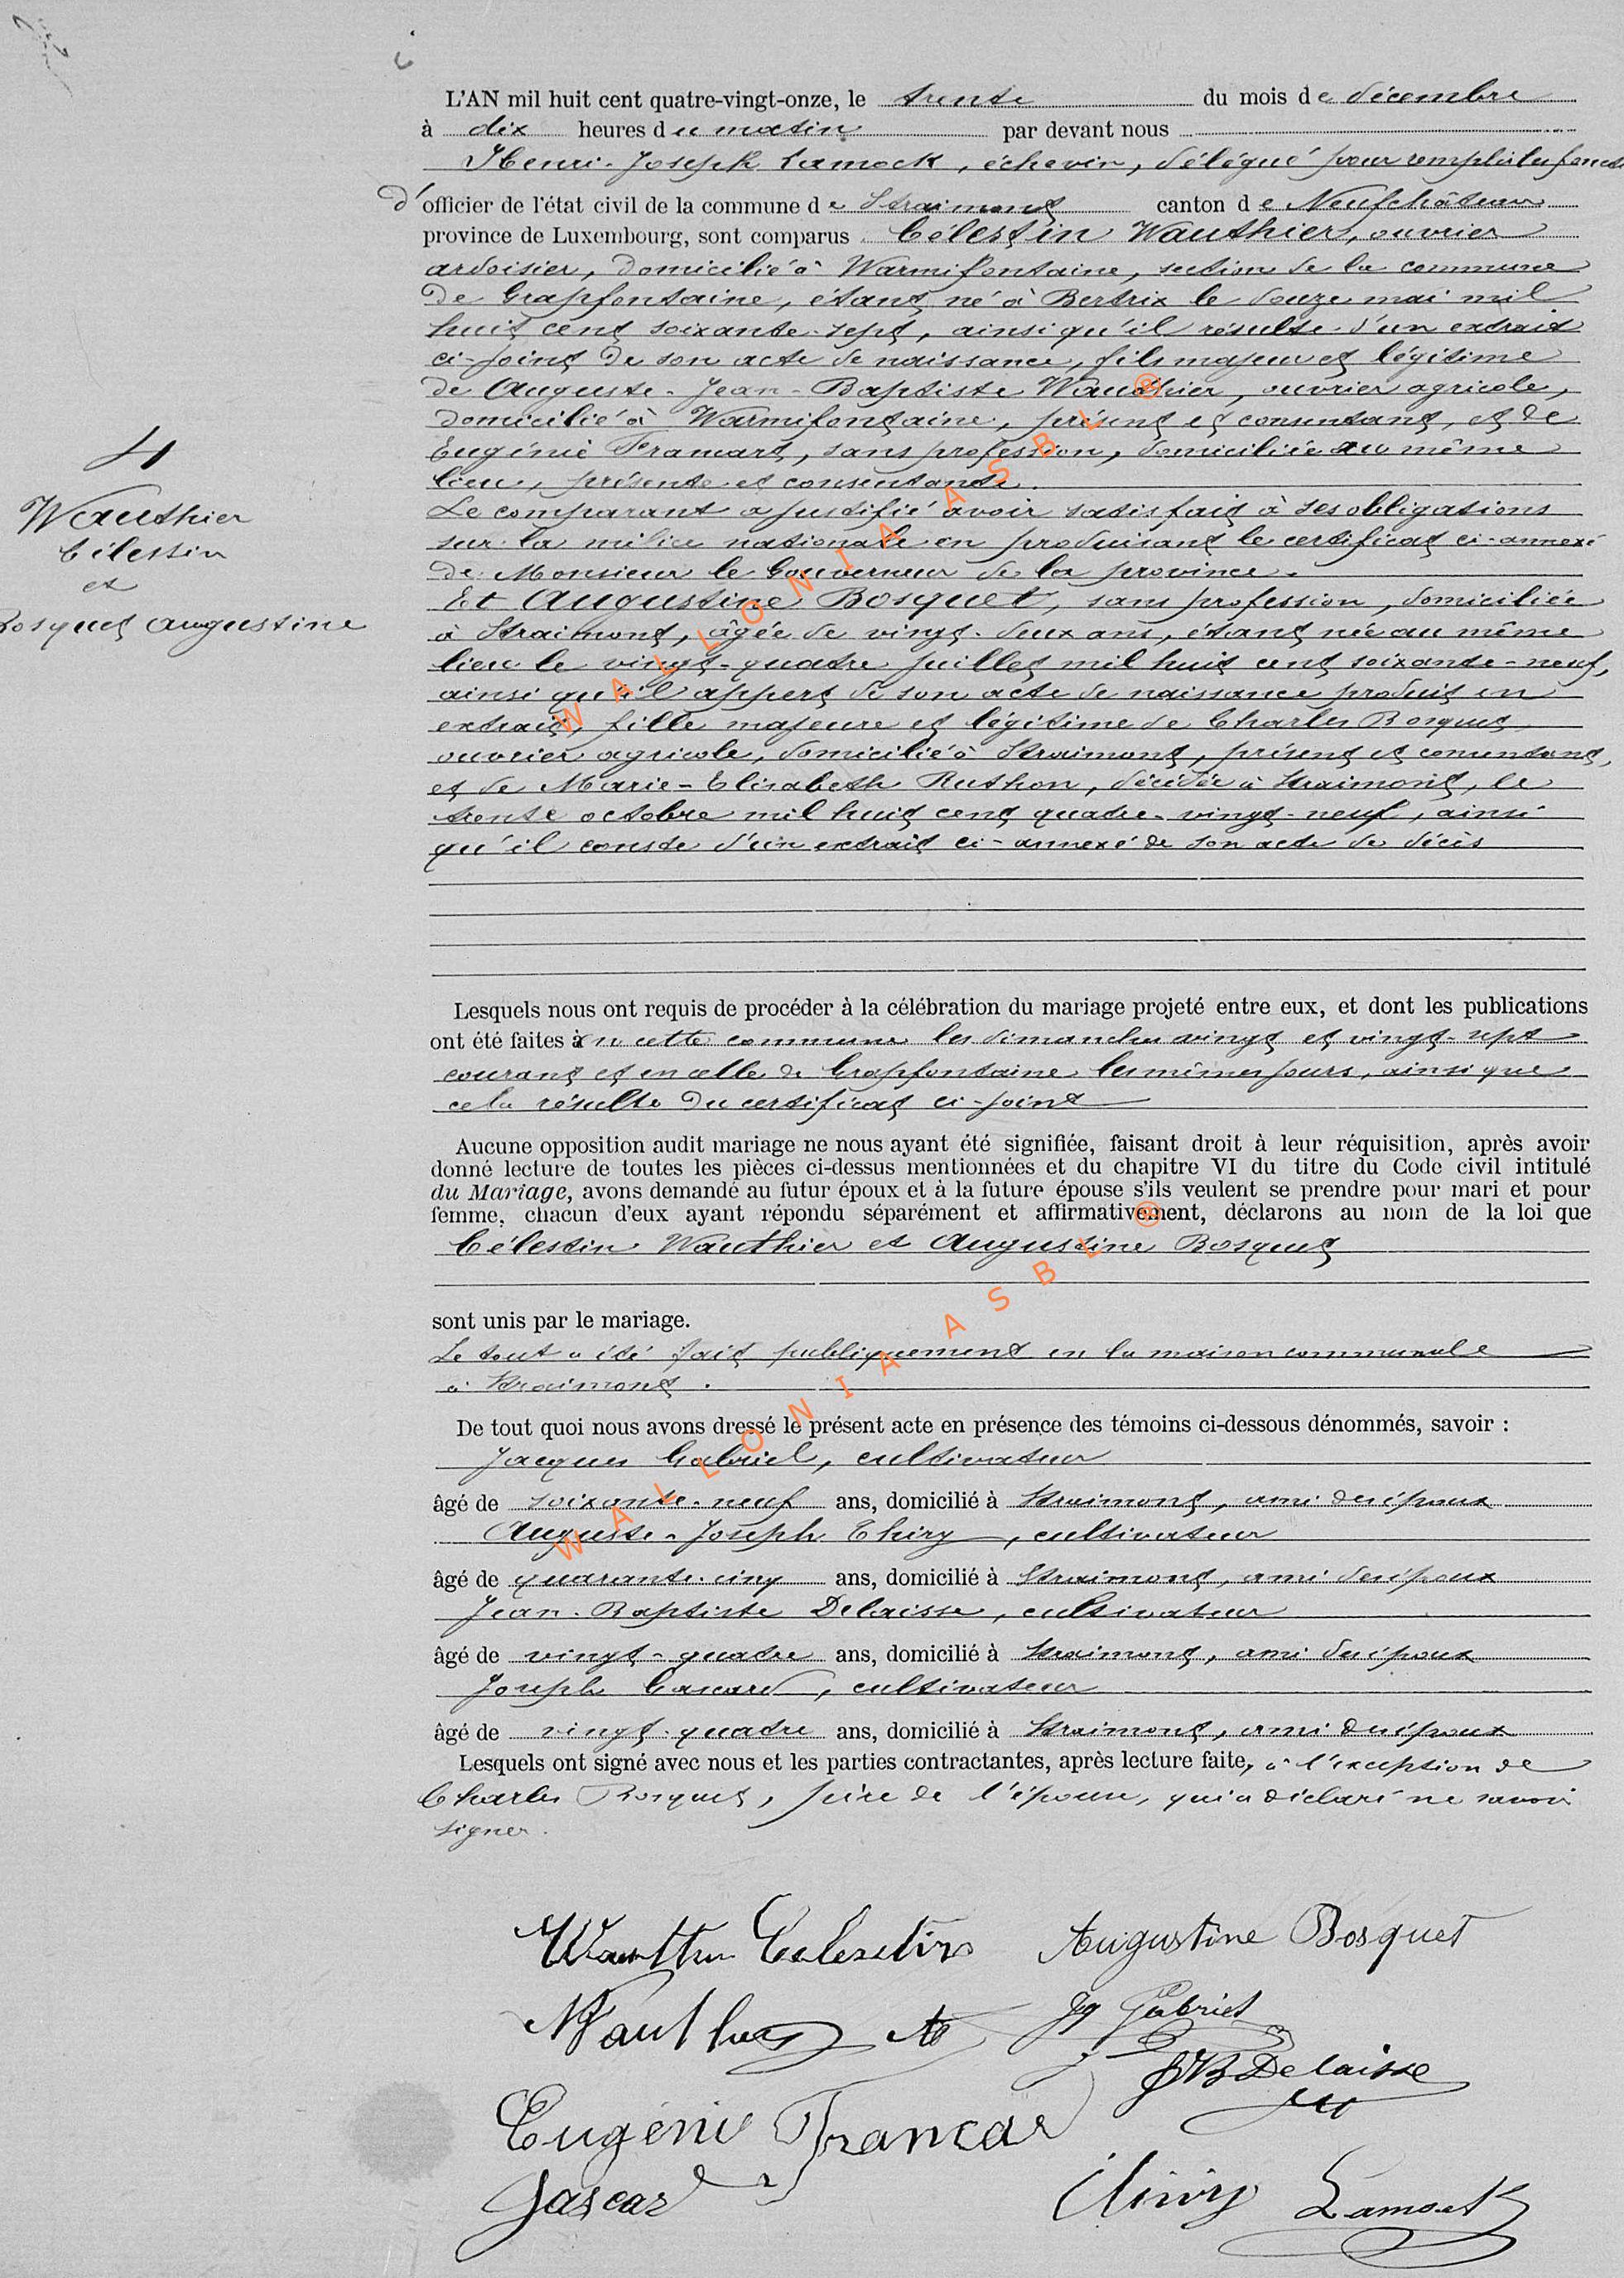 L'AN mil huit cent quatre-vingt-onze, le trente du mois de décembre
à dix heures du matin par devant nous
Henri-Joseph Lamock, échevin, délégué pour remplir les fonct
d'officier de l'état civil de la commune de Straimont canton de Neufchâteau
province de Luxembourg, sont comparus Célestin Wauthier, ouvrier
ardoisier, domicilié à Warmifontaine, section de la commune
de Grapfontaine, étant né à Bertrix le douze mai mil
huit cent soixante-sept, ainsi qu'il résulte d'un extrait
ci-joint de son acte de naissance, fils majeur et légitime
de Auguste-Jean-Baptiste Wauthier, ouvrier agricole,
domicilié à Warmifontaine, présent et consentant, et de
Eugénie Framart, sans profession, domiciliée au même
lieu, présente et consentante.
Le comparant a justifié avoir satisfait à ses obligations
sur la milice nationale en produisant le certificat ci-annexé
de Monsieur le Gouverneur de la province.
Et Augustine Bosquet, sans profession, domiciliée
à Straimont, âgée de vingt-deux ans, étant née au même
lieu le vingt-quatre juillet mil huit cent soixante-neuf,
ainsi qu'il appert de son acte de naissance produit en
extrait, fille majeure et légitime de Charles Bosquet,
ouvrier agricole, domicilié à Straimont, présent et consentant,
et de Marie-Elisabeth Ruthon, décédée à Straimont, le
trente octobre mil huit cent quatre-vingt-neuf, ainsi
qu'il conste d'un extrait ci-annexé de son acte de décès
4
Wauthier
Célestin
et
Bosquet Augustine
Lesquels nous ont requis de procéder à la célébration du mariage projeté entre eux, et dont les publications
ont été faites en cette commune les dimanches vingt et vingt-sept
courant et en celle de Grapfontaine les mêmes jours, ainsi que
cela résulte du certificat ci-joint
Aucune opposition audit mariage ne nous ayant été signifiée, faisant droit à leur réquisition, après avoir
donné lecture de toutes les pièces ci-dessus mentionnées et du chapitre VI du titre du Code civil intitulé
du Mariage, avons demandé au futur époux et à la future épouse s'ils veulent se prendre pour mari et pour
femme, chacun d'eux ayant répondu séparément et affirmativement, déclarons au nom de la loi que
Célestin Wauthier et Augustine Bosquet
sont unis par le mariage.
Le tout a été fait publiquement en la maison communale
à Straimont.
De tout quoi nous avons dressé le présent acte en présence des témoins ci-dessous dénommés, savoir :
Jacques Gabriel, cultivateur
âgé de soixante-neuf ans, domicilié à Straimont, ami des époux
Auguste-Joseph Thiry, cultivateur
âgé de quarante-cinq ans, domicilié à Straimont, ami des époux
Jean-Baptiste Delaisse, cultivateur
âgé de vingt-quatre ans, domicilié à Straimont, ami des époux
Joseph Gascard, cultivateur
âgé de vingt-quatre ans, domicilié à Straimont, ami des époux
Lesquels ont signé avec nous et les parties contractantes, après lecture faite, à l'exception de
Charles Bosquet, père de l'épouse, qui a déclaré ne savoir
signer.
Wautthier Celestin Augustine Bosquet
Wauthier Jq Gabriel
JB Delaisse
Eugénie Francar
Gascard Thiry Lamock
WALLONIA ASBL ®
WALLONIA ASBL ®